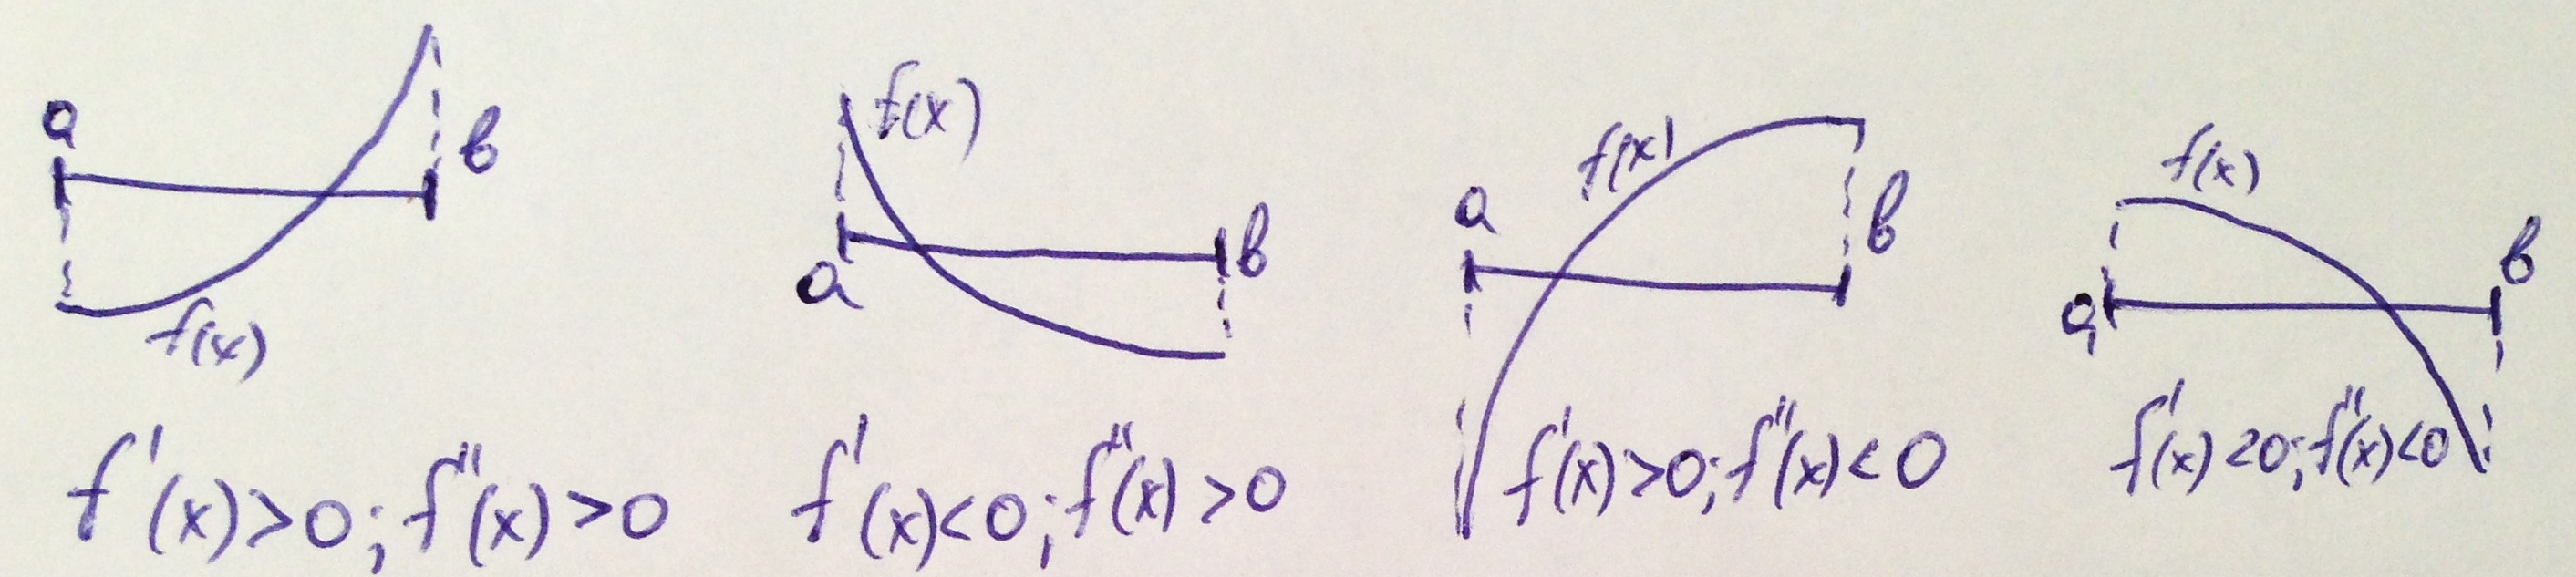 a
b
f(x)
f'(x)>0; f''(x)>0
f(x)
a
b
f'(x)<0; f''(x)>0
f(x)
a
b
f'(x)>0; f''(x)<0
f(x)
a
b
f'(x)<0; f''(x)<0